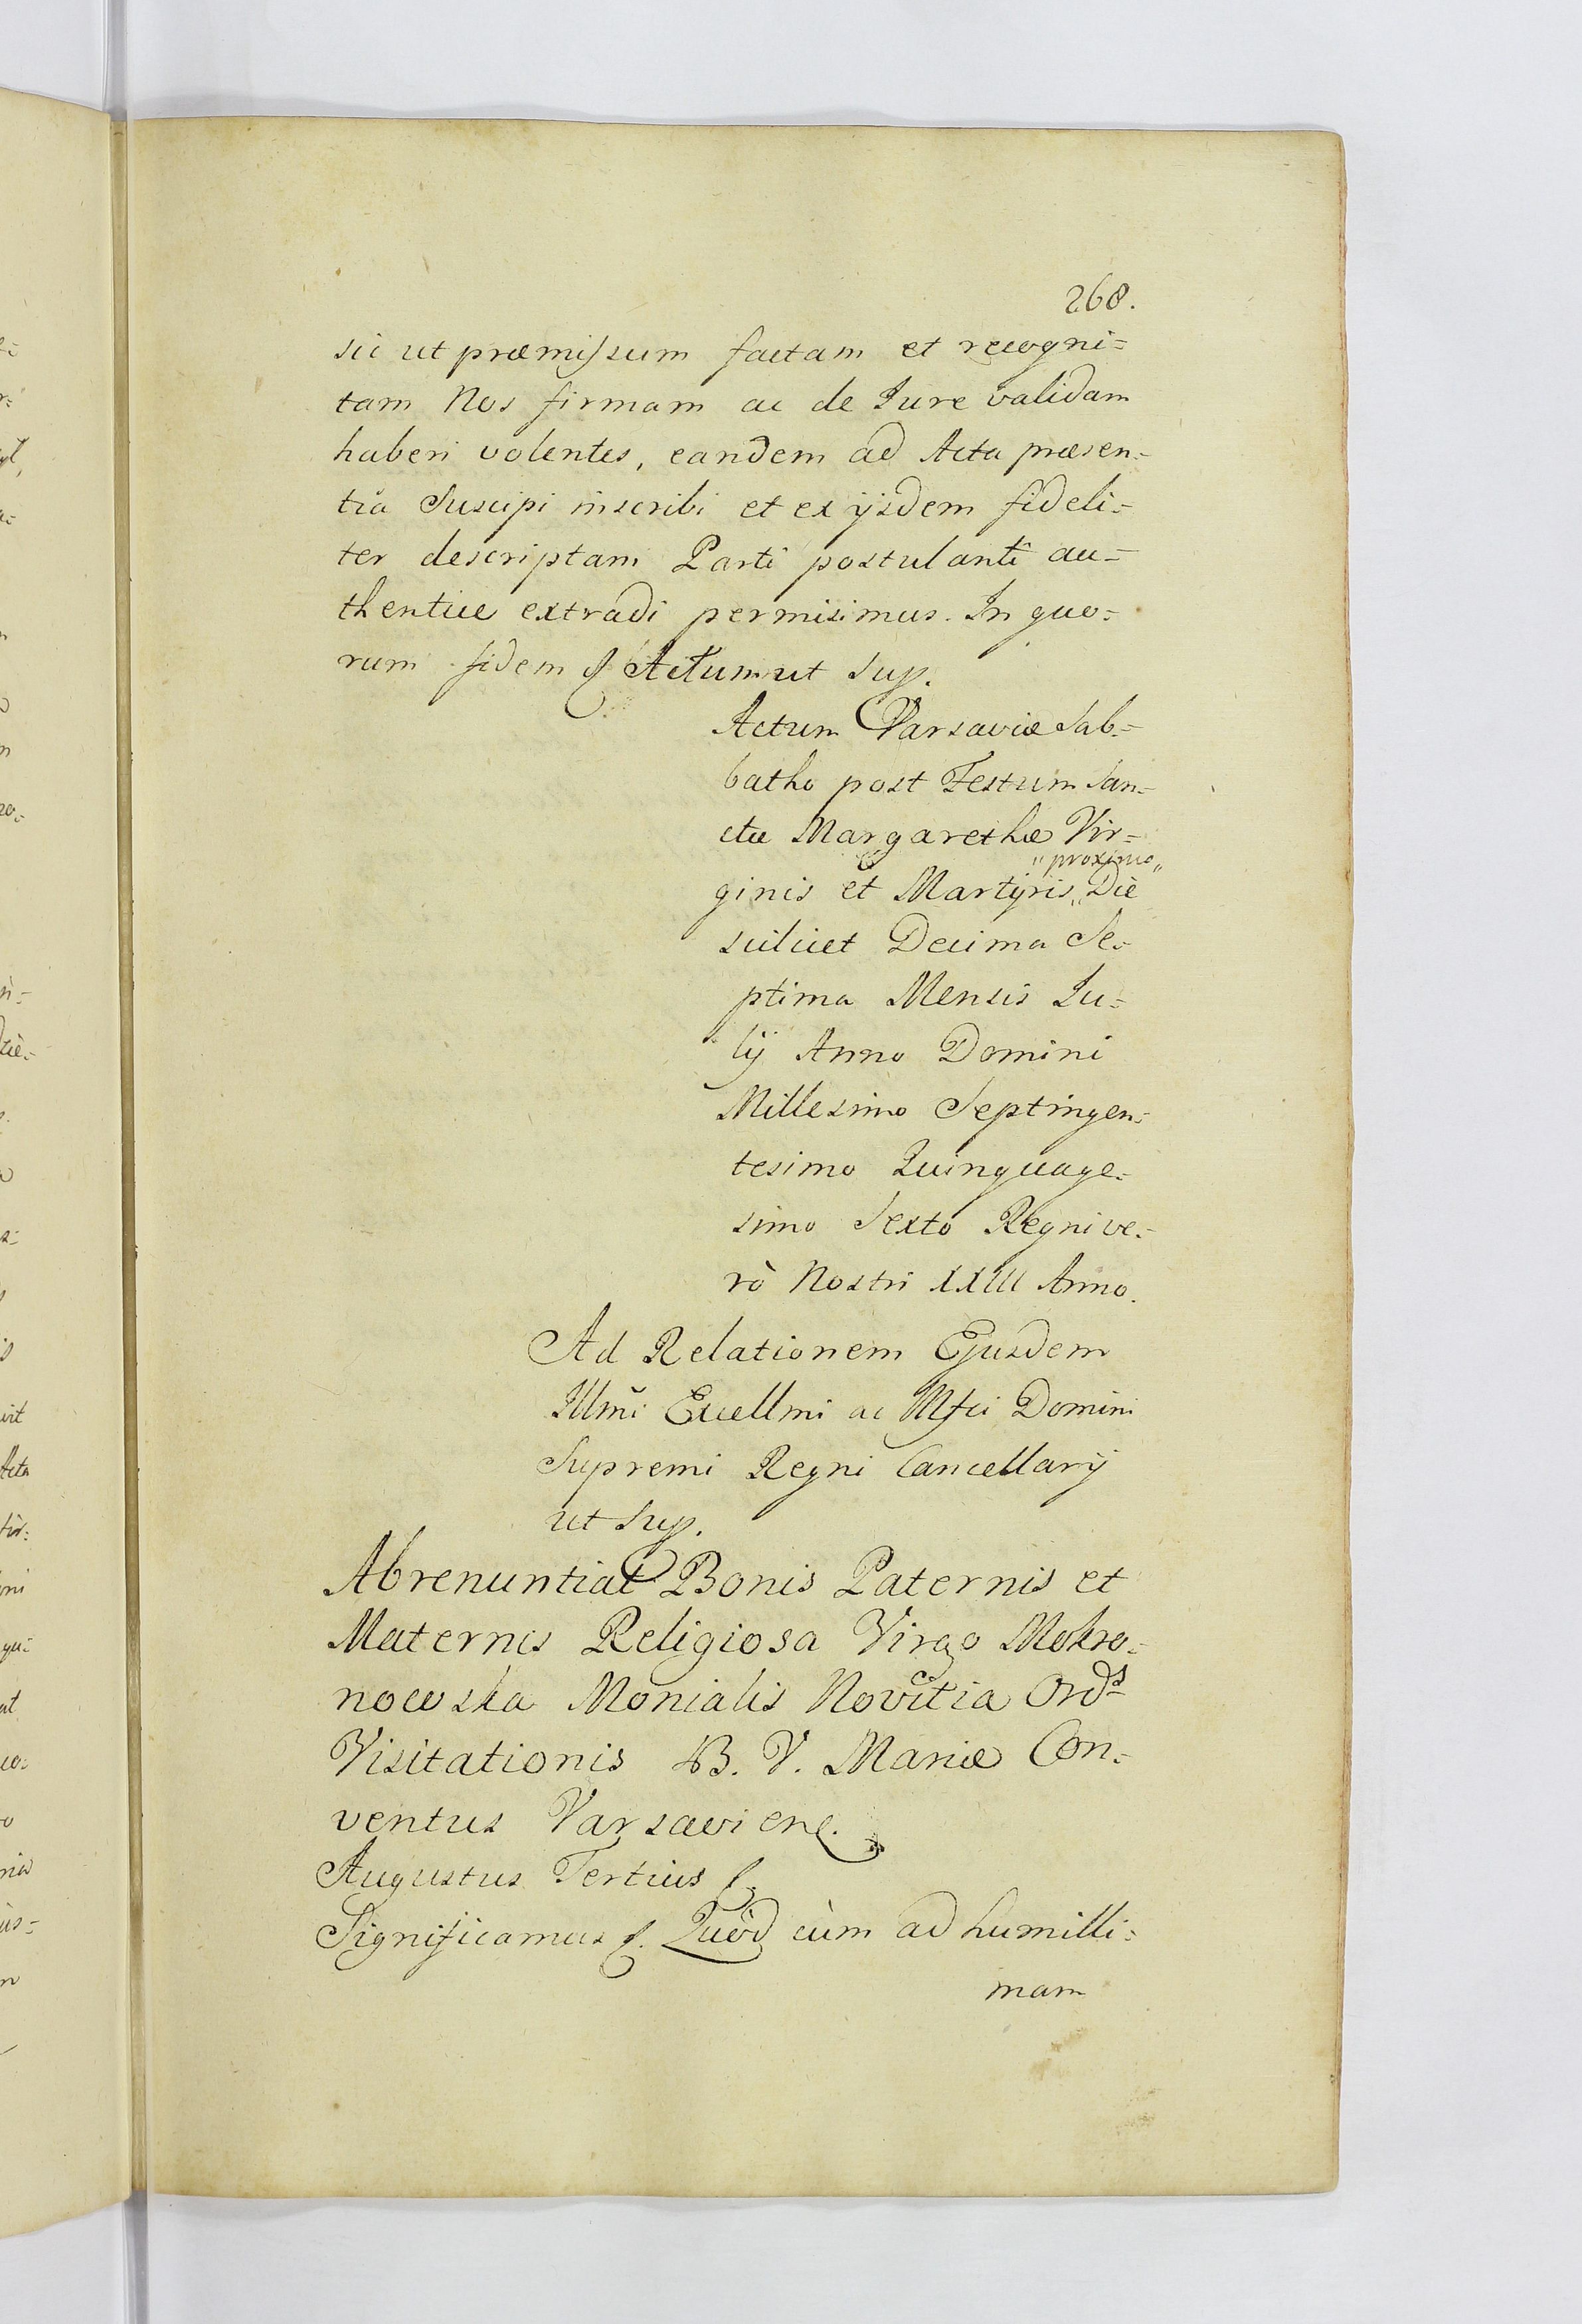 268.
sic ut præmissum factam et recogni=
tam Nos firmam ac de Jure validam
haberi volentes, eandem ad Acta præsen=
tia Suscipi inscribi et ex ijsdem fideli=
ter descriptam Parti postulanti au=
thentice extradi permisimus. In quo=
rum fidem Actum ut Sup.
Actum Varsaviæ Sab=
batho post Festum San=
ctæ Margarethæ Vir=
"proximo"
ginis et Martyris,, Die
scilicet Decima Se=
ptima Mensis Ju=
lij Anno Domini
Millesimo Septingen=
tesimo Quinquage=
simo Sexto Regni ve=
rò Nostri XXIII Anno.
Ad Relationem Ejusdem
Illmi Excellmi ac Mfci Domini
Supremi Regni Cancellarij
ut Sup.
Abrenuntiat Bonis Paternis et
Maternis Religiosa Virgo Mokro=
nowska Monialis Novitia Ords
Visitationis B. V. Mariæ Con=
ventus Varsavien.
Augustus Tertius
Significamus Quòd cùm ad humilli=
mam